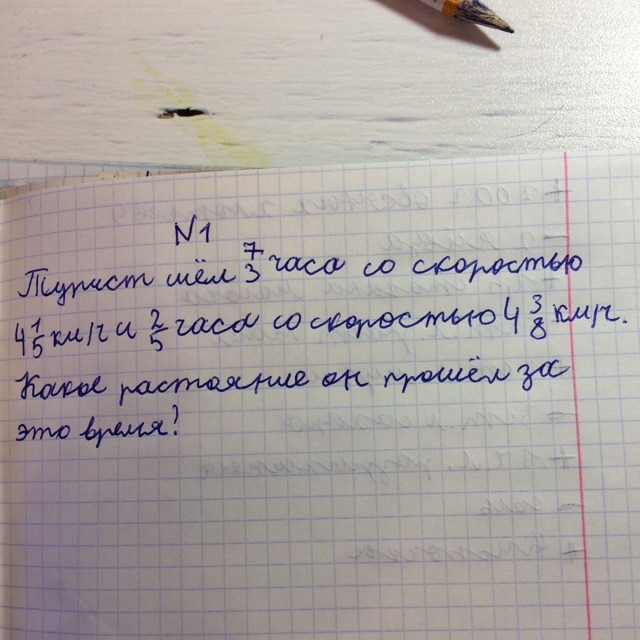 N1
Турист шёл 7/3 часа со скоростью
4 1/5 км/ч и 2/5 часа со скоростью 4 3/8 км/ч.
Какое растояние он прошёл за
это время?